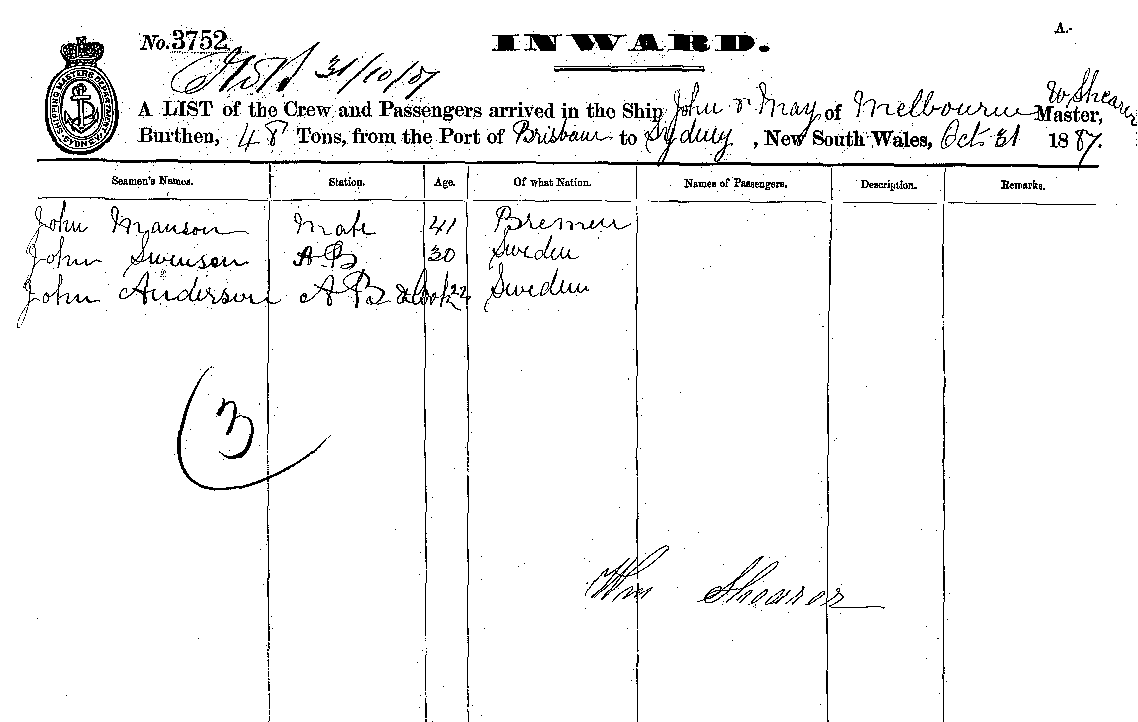 A.-
No. 3752 INWARD.
31/10/87
A LIST of the Crew and Passengers arrived in the Ship John & May of Melbourne W Shearer Master,
Burthen, 48 Tons, from the Port of Brisbane to Sydney, New South Wales, Oct 31 1887.
Seamen's Names. Station. Age. Of what Nation. Names of Passengers. Description. Remarks.
John Manson Mate 41 Bremen
John Swensen AB 30 Sweden
John Anderson AB & Cook 22 Sweden
3
Wm Shearer